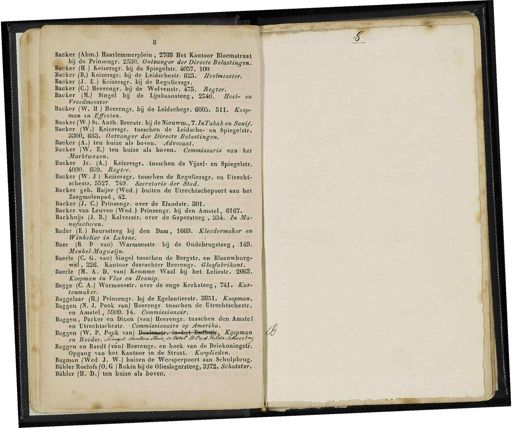 8
Backer (Abm.) Haarlemmerplein, 2788 Het Kantoor Bloemstraat
bij de Prinsengr. 2530. Ontvanger der Directe Belastingen.
Backer (H ) Keizersgr. bij de Spiegelstr. 4057. 100
Backer (B.) Keizersgr. bij de Leidschestr. 625. Heelmeester.
Backer (J. E ) Keizersgr. bij de Reguliersgr.
Backer (C.) Heerengr. bij de Wolvenstr. 475. Regter.
Backer (M.) Singel bij de Lijnbaansteeg, 2546. Heel- en
Vroedmeester
Backer (W. H ) Heerengr. bij de Leidschegr. 6605. 511. Koop-
man in Effecten.
Backer (W.) St. Anth. Breestr. bij de Nieuwm., 7. In Tabak en Snuif.
Backer (W.) Keizersgr. tusschen de Leidsche- en Spiegelstr.
3300, 663. Ontvanger der Directe Belastingen.
Backer (A.) ten huize als boven. Advocaat.
Backer (W. E.) ten huize als boven. Commissaris van het
Marktwezen.
Backer Jr. (A.) Keizersgr. tusschen de Vijzel- en Spiegelstr.
4090. 689. Regter.
Backer (W. J ) Keizersgr. tusschen de Reguliersgr. en Utrecht-
schestr. 5527. 749. Secretaris der Stad.
Backer geb. Huijer (Wed.) buiten de Utrechtschepoort aan het
Zaagmolenpad, 42.
Backer (J. C.) Prinsengr. over de Elandstr. 301.
Backer van Leuven (Wed.) Prinsengr. bij den Amstel, 6167.
Backhuijs (J. B.) Kalverstr. over de Gapersteeg, 334. In Ma-
nufacturen.
Bader (E.) Beursteeg bij den Dam, 1669. Kleedermaker en
Winkelier in Lakens.
Baer (B P van) Warmoesstr. bij de Oudebrugsteeg, 149.
Meubel-Magazijn.
Baerle (C. G. van) Singel tusschen de Bergstr. en Blaauwburg-
wal, 326. Kantoor daarachter Heerengr. Glasfabrikant.
Baerle (M. A. D. van) Kromme Waal bij het Leliestr. 2663.
Koopman in Vlas en Hennip.
Bagge (C. A.) Warmoesstr. over de enge Kerksteeg, 741. Kas-
tenmaker.
Baggelaar (H.) Prinsengr. bij de Egelantierstr. 3851. Koopman.
Baggen (N. J. Pook van) Heerengr. tusschen de Utrechtschestr.
en Amstel, 5909. 14. Commissionair.
Baggen, Parker en Dixon (van) Heerengr. tusschen den Amstel
en Utrechtschestr. Commissionairs op Amerika.
Baggen (W. P. Pook van) Doelenstr. in het Bushuis, Koopman
en Reeder.
Baggen en Raedt (van) Heerengr. en hoek van de Driekoningstr.
Opgang van het Kantoor in de Straat. Kooplieden.
Bagman (Wed J. W.) buiten de Weesperpoort aan Schulpbrug.
Bähler Roelofs (O. G ) Rokin bij de Olieslagerssteeg, 3972. Schatster.
Bähler (H. D.) ten huize als boven.
8